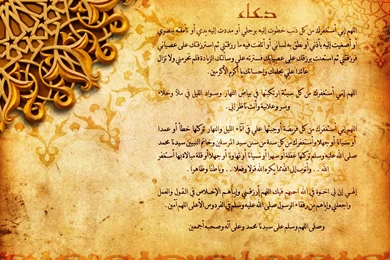 دعاء
اللهم إني أستغفرك من كل ذنب خطوت إليه برجلي أو مددت إليه يدي أو تأملته ببصري
أو أصغيت إليه بأذني أو نطق به لساني أو أتلفت فيه ما رزقتني ثم استرزقتك على عصياني
فرزقتني ثم استعنت برزقك على عصيانك فسترته علي وسألتك الزيادة فلم تحرمني ولا تزال
عائدا علي بحلمك وإحسانك يا أكرم الأكرمين.
اللهم إني أستغفرك من كل سيئة ارتكبتها في بياض النهار وسواد الليل في ملأ وخلاء
وسر وعلانية وأنت ناظر إلي.
اللهم إني أستغفرك من كل فريضة أوجبتها علي في آناء الليل والنهار تركتها خطأ أو عمدا
أو نسيانا أو جهلا وأستغفرك من كل سنة من سنن سيد المرسلين وخاتم النبيين سيدنا محمد
صلى الله عليه وسلم تركتها غفلة أو سهوا أو نسيانا أو تهاونا أو جهلا أو قلة مبالاة بها أستغفر
الله .. وأتوب إلى الله مما يكره الله قولا وفعلا .. وباطنا وظاهرا.
إلهي إن لي اخوة في الله أحبهم فيك اللهم ارزقني وإياهم الإخلاص في القول والعمل
واجعلني وإياهم من رفقاء الرسول صلى الله عليه وسلم في الفردوس الأعلى اللهم آمين.
وصلى اللهم وسلم على سيدنا محمد وعلى آله وصحبه أجمعين